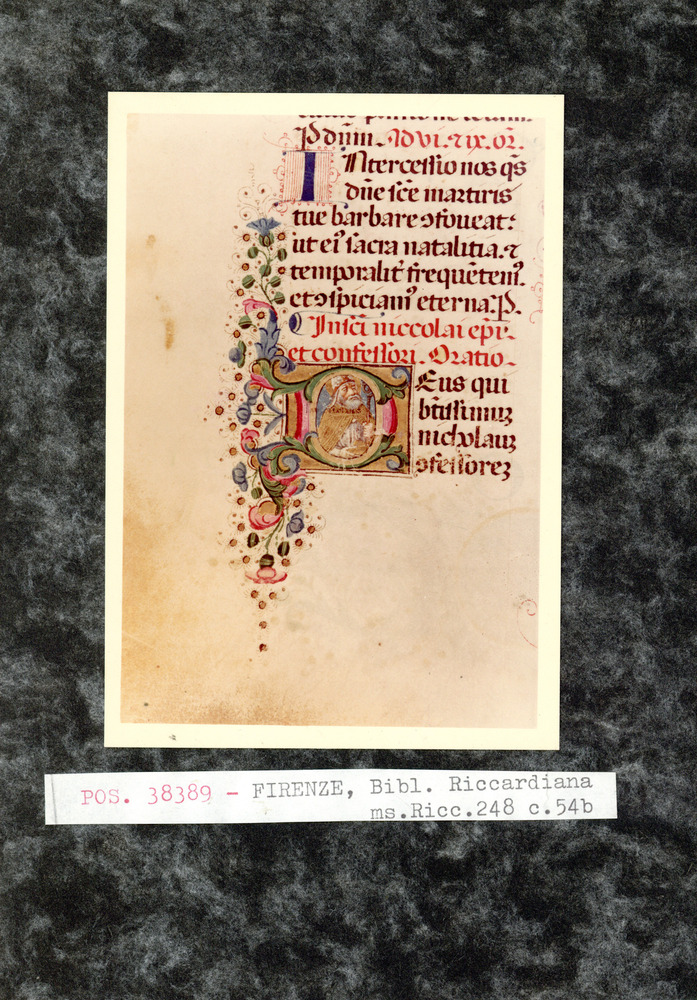 P dn̄m. Ad vi. ⁊ ix. or̄.
INtercessio nos q̄s
dn̄e sc̄e martiris
tue barbare ꝯfoueat:
ut eiꝰ sacra natalitia. ⁊
temporalit̄ frequētemꝰ.
et ꝯspiciamꝰ eterna. P.
In sc̄i niccolai epi.
et confessori. Oratio.
DEus qui
btissimuꝫ
nicholauꝫ
ꝯfessoreꝫ
POS. 38389 - FIRENZE, Bibl. Riccardiana
ms.Ricc.248 c.54b